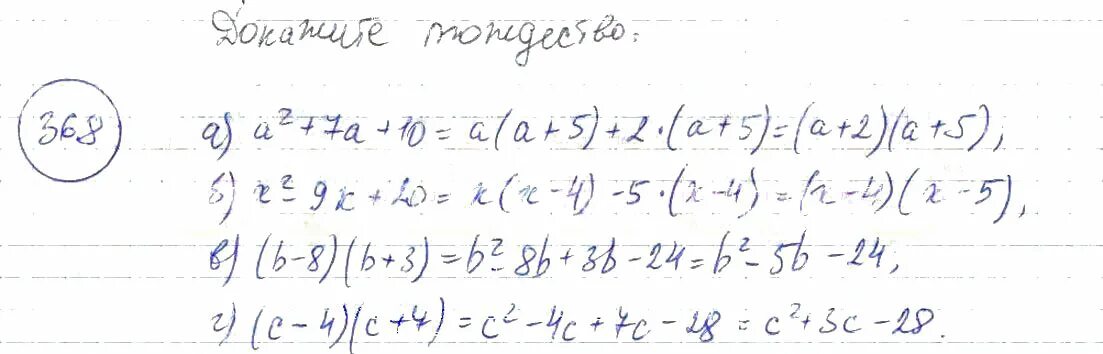 Докажите тождество:
368 а) a² + 7a + 10 = a(a + 5) + 2·(a + 5) = (a + 2)(a + 5),
б) x² - 9x + 20 = x(x - 4) - 5·(x - 4) = (x - 4)(x - 5),
в) (b - 8)(b + 3) = b² - 8b + 3b - 24 = b² - 5b - 24,
г) (c - 4)(c + 7) = c² - 4c + 7c - 28 = c² + 3c - 28.